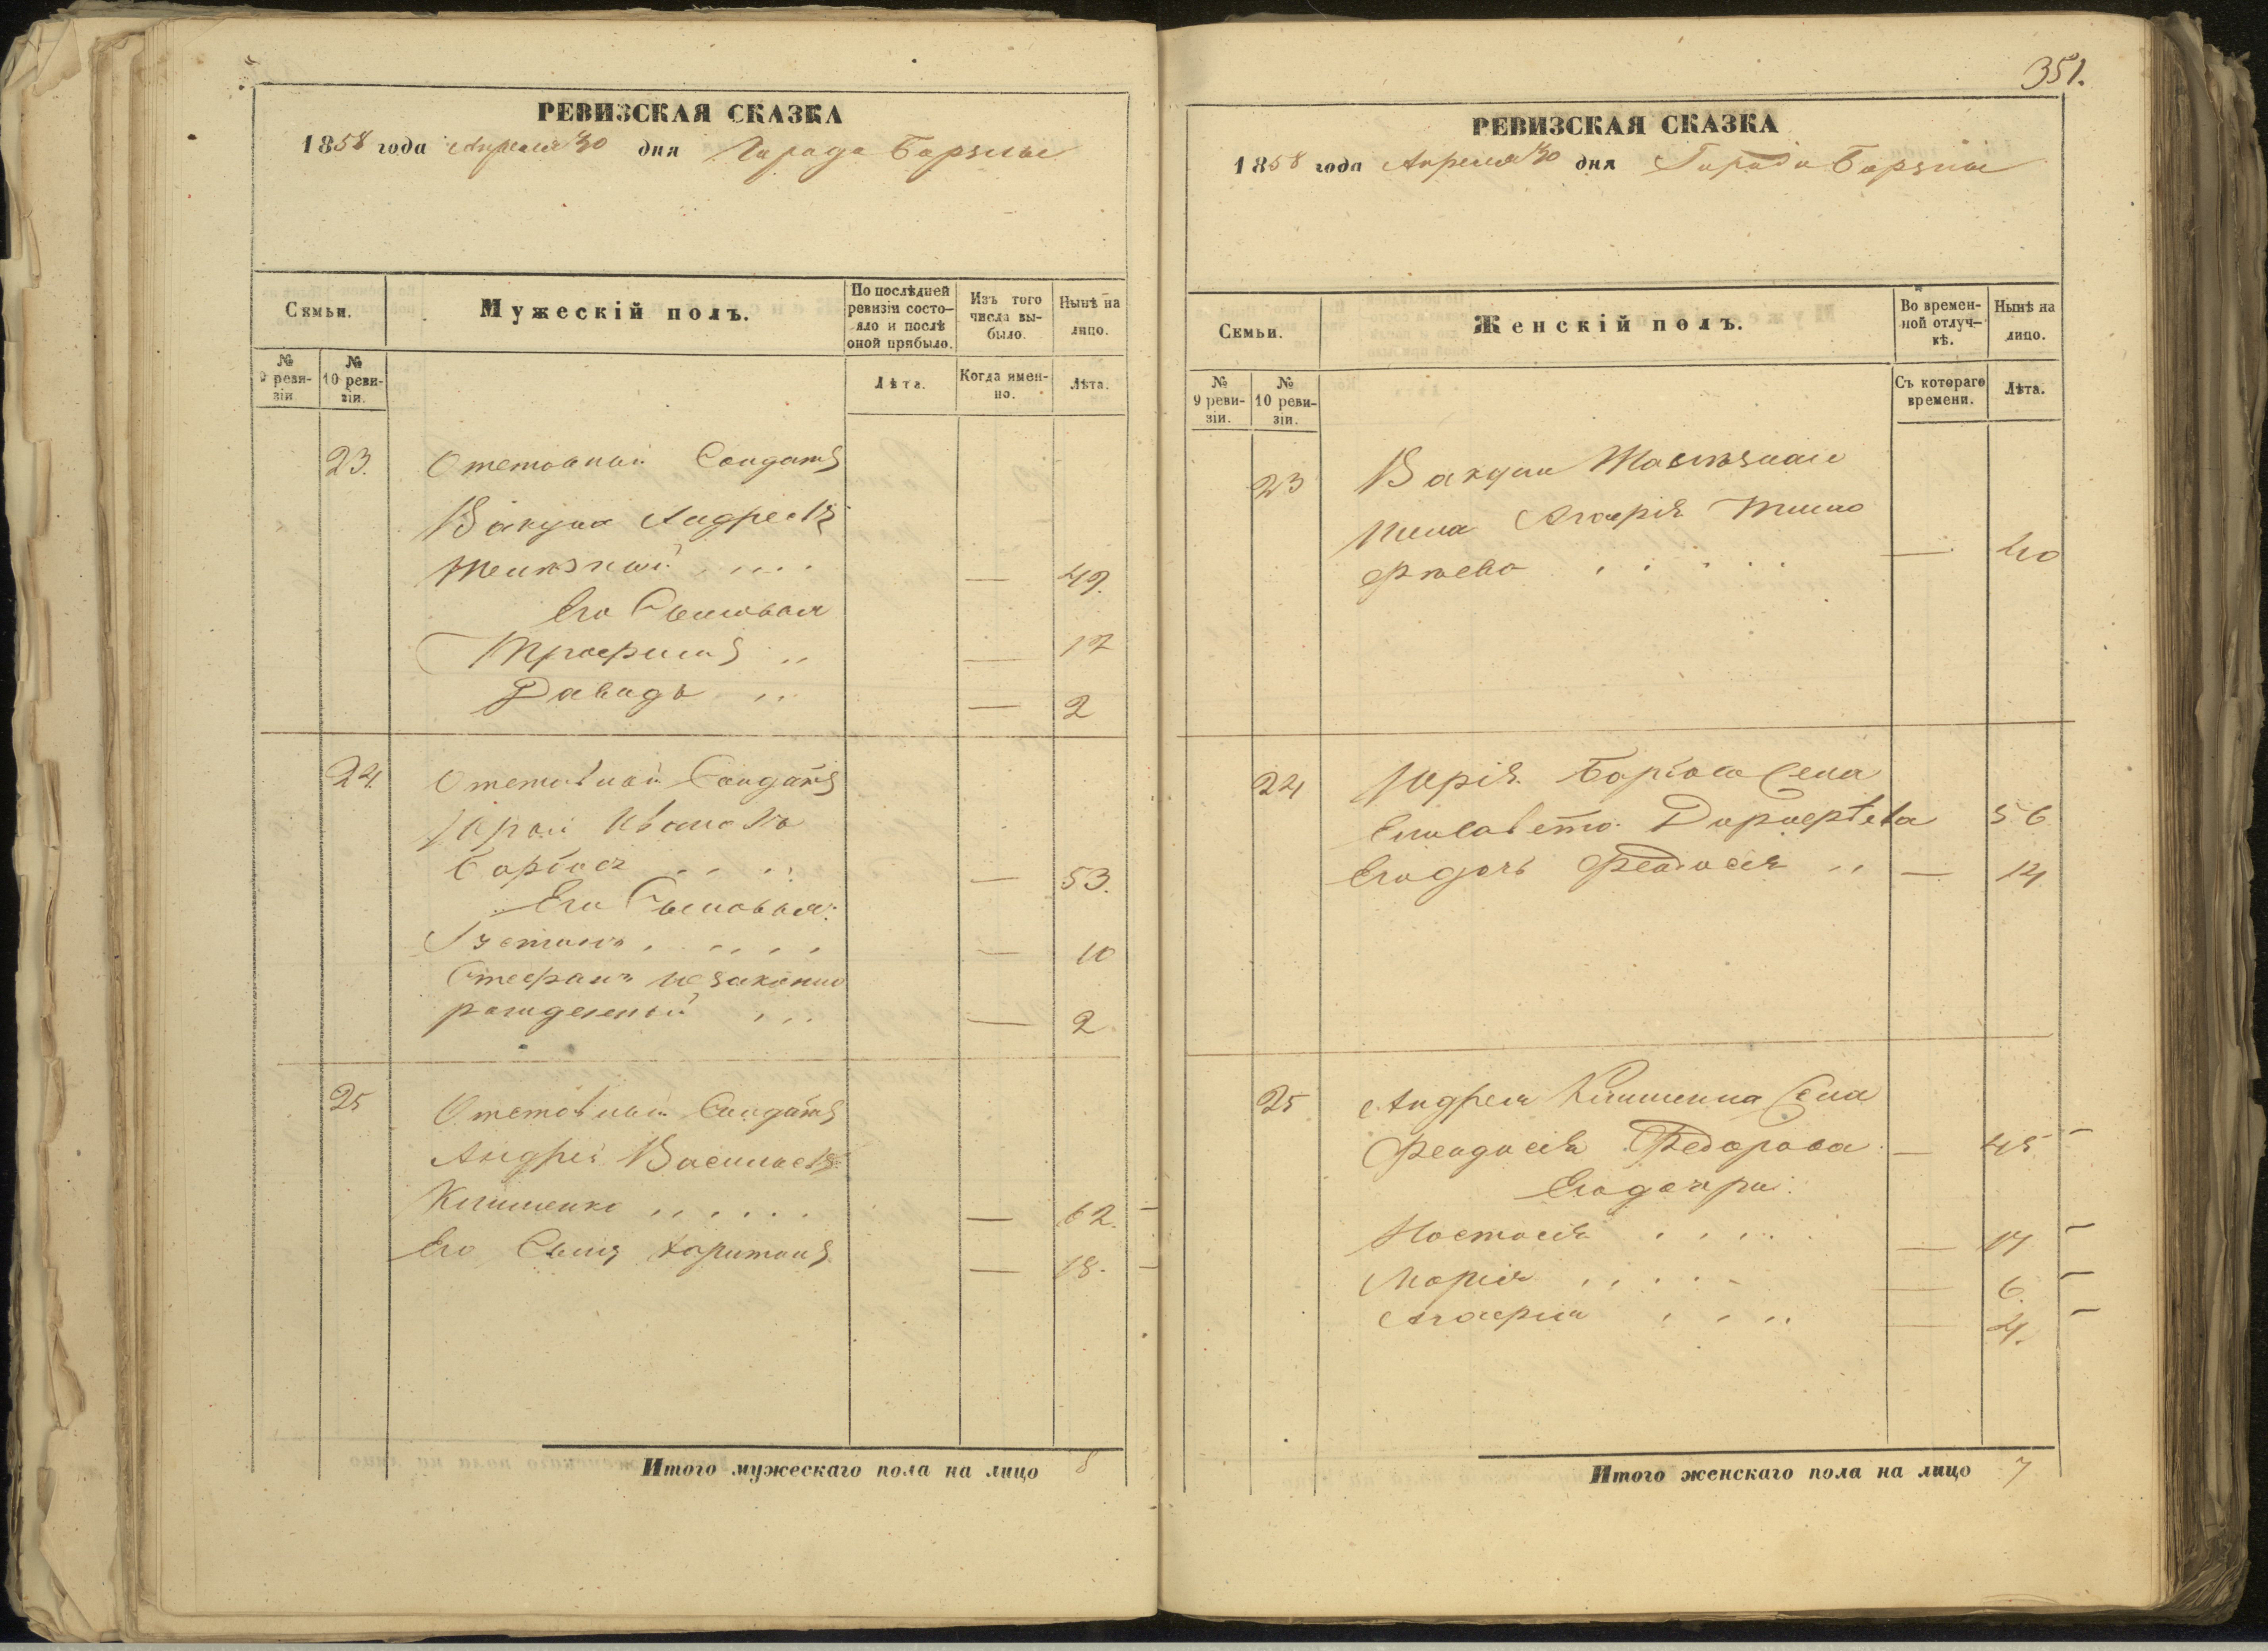 РЕВИЗСКАЯ СКАЗКА
1858 года Апреля 30 дня Города Борзны
Семьи.
Мужескій полъ.
По послѣдней ревизіи состояло и послѣ оной прибыло.
Изъ того числа выбыло.
Нынѣ на лицо.
№ 9 ревизіи.
№ 10 ревизіи.
Лѣта.
Когда именно.
Лѣта.
23. Отставной Солдатъ
Вакула Андреевъ
— 49.
Его Сыновья
Трофимъ — 12
Давидъ — 2
24. Отставной Солдатъ
Юрій Ивановъ
— 53.
Его Сыновья:
— 10
Стефанъ незаконно
рожденный — 2
25 Отставной Солдатъ
Андрей Васильевъ
Клименко — 62.
Его Сынъ Харитонъ — 18.
Итого мужескаго пола на лицо 8
351.
РЕВИЗСКАЯ СКАЗКА
1858 года Апреля 30 дня Города Борзны
Семьи.
Женскій полъ.
Во временной отлучкѣ.
Нынѣ на лицо.
№ 9 ревизіи.
№ 10 ревизіи.
Съ котораго времени.
Лѣта.
23 Вакулы
жена Агафія Тимо
фѣева — 40
24 Юрія жена
Елисавета Дорофѣева 56
Его дочь Феодосія — 14
25 Андрея Клименка жена
Феодосія Федорова — 45
Его дочери:
Настасія — 14
Марія — 6.
Агафія — 4.
Итого женскаго пола на лицо 7